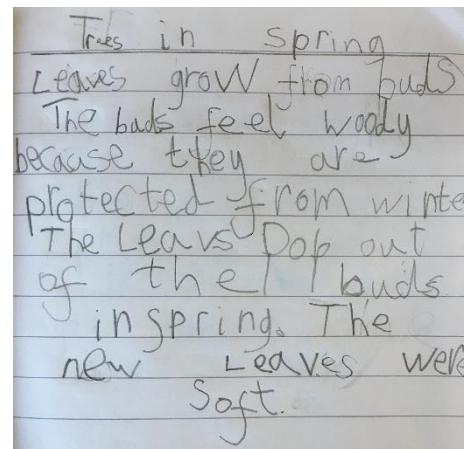 Trees in spring
Leaves grow from buds
The buds feel woody
because they are
protected from winte
The Leavs Pop out
of the buds
in spring. The
new Leaves were
Soft.